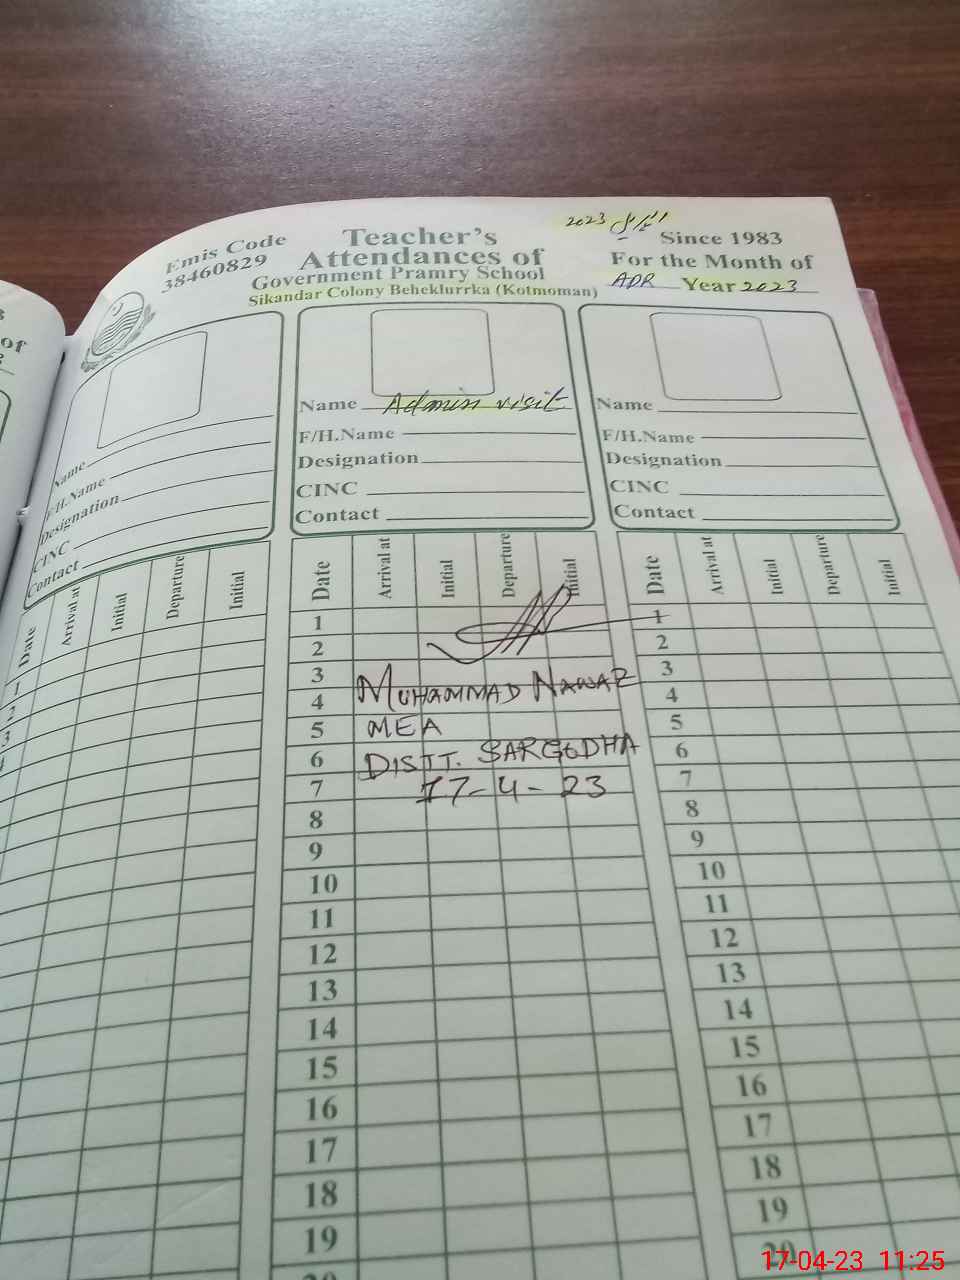 Emis Code
38460829
Teacher's
Attendances of
Government Pramry School
Sikandar Colony Beheklurrka (Kotmoman)
اپریل 2023
Since 1983
For the Month of
APR Year 2023
of
Name
F/H.Name
Designation
CINC
Contact
Name Admin visit
F/H.Name
Designation
CINC
Contact
Name
F/H.Name
Designation
CINC
Contact
Date Arrival at Initial Departure Initial
Date Arrival at Initial Departure Initial
Date Arrival at Initial Departure Initial
1
2
3
1
2
3
4
5
6
7
8
9
10
11
12
13
14
15
16
17
18
19
20
MUHAMMAD NAWAZ
MEA
DISTT. SARGODHA
17-4-23
1
2
3
4
5
6
7
8
9
10
11
12
13
14
15
16
17
18
19
20
17-04-23 11:25